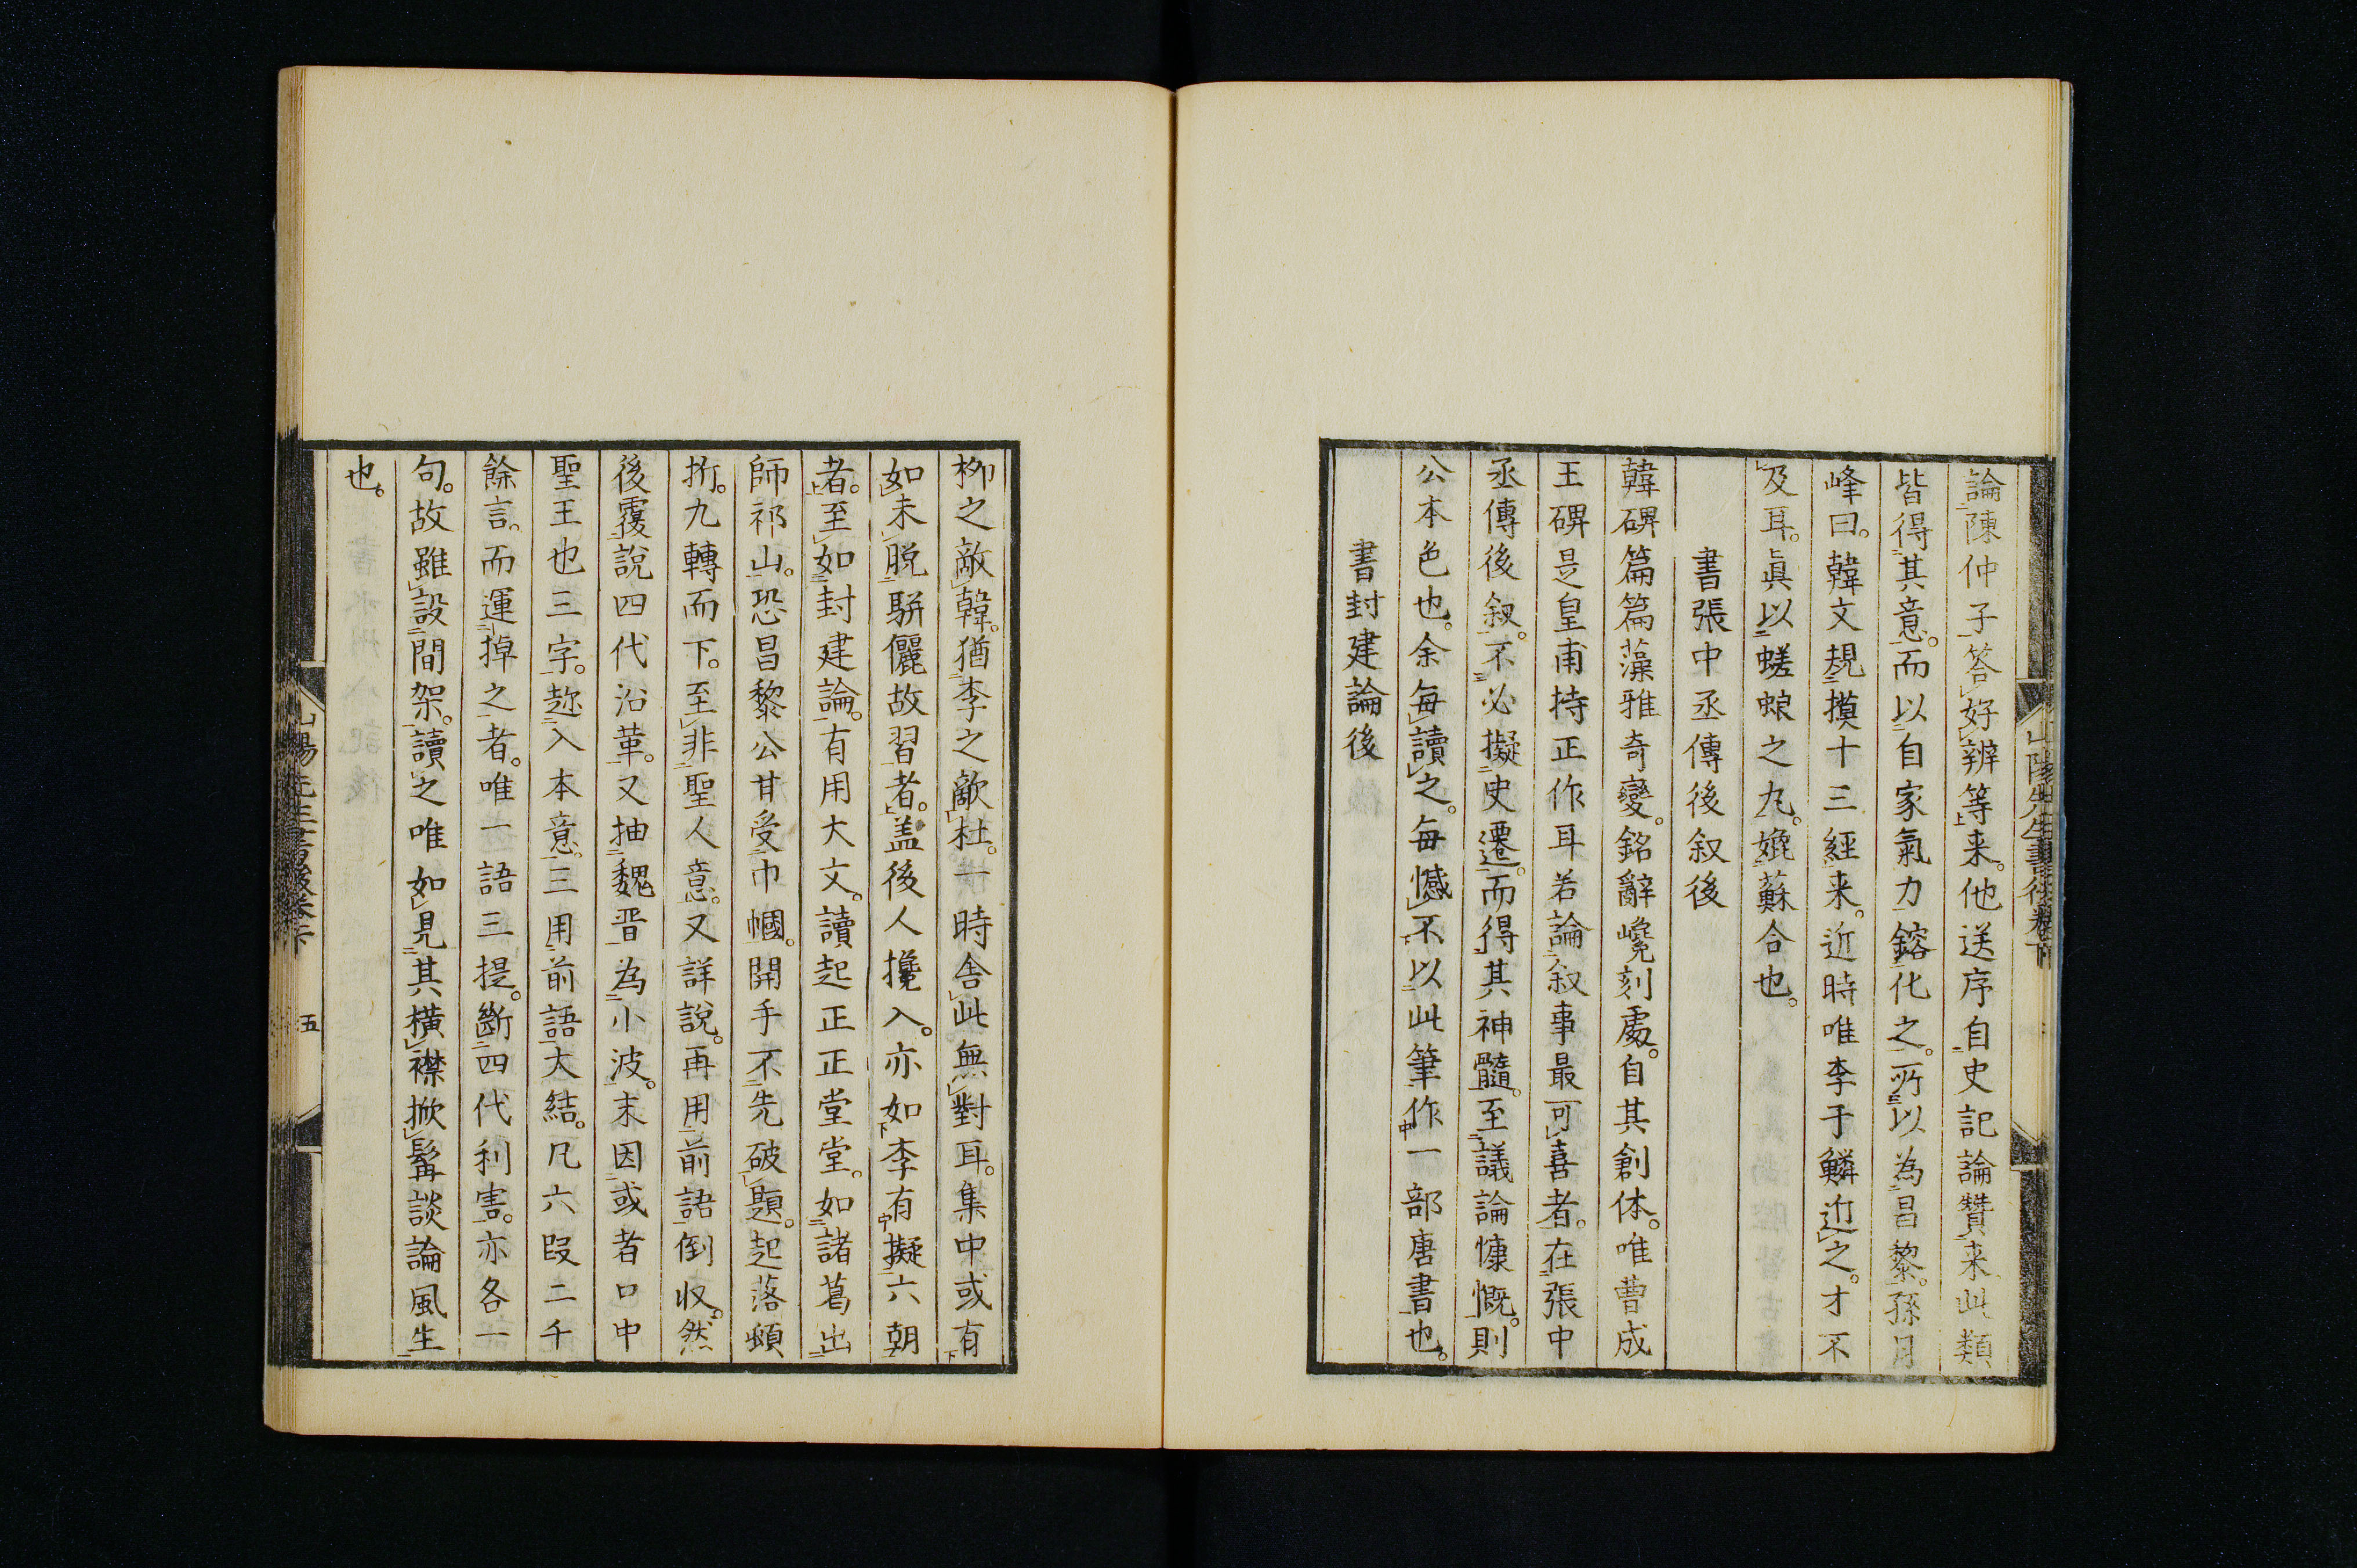 論陳仲子答好辨等来。他送序自史記論贊来此類
皆得其意。而以自家氣力鎔化之。所以為昌黎。孫月
峰曰。韓文規摸十三經来。近時唯李于鱗近之。才不
及耳。眞以蜣蜋之丸。媲蘇合也。
書張中丞傳後叙後
韓碑篇篇藻雅奇變。銘辭巉刻處。自其創体。唯曹成
王碑是皇甫持正作耳若論叙事最可喜者。在張中
丞傳後叙。不必擬史遷。而得其神髓。至議論慷慨。則
公本色也。余每讀之。每憾不以此筆作一部唐書也。
書封建論後
柳之敵韓。猶李之敵杜。一時舍此無對耳。集中或有
如未脱駢儷故習者。盖後人攙入。亦如李有擬六朝
者。至如封建論。有用大文。讀起正正堂堂。如諸葛出
師祁山。恐昌黎公甘受巾幗。開手不先破題。起落頓
折。九轉而下。至非聖人意。又詳說。再用前語倒収。然
後覆說四代沿革。又抽魏晋為小波。末因或者口中
聖王也三字。趂入本意。三用前語大結。凡六段二千
餘言。而運掉之者。唯一語三提。斷四代利害。亦各一
句。故雖設間架。讀之唯如見其橫襟掀髯談論風生
也。
山陽先生書後卷下
五